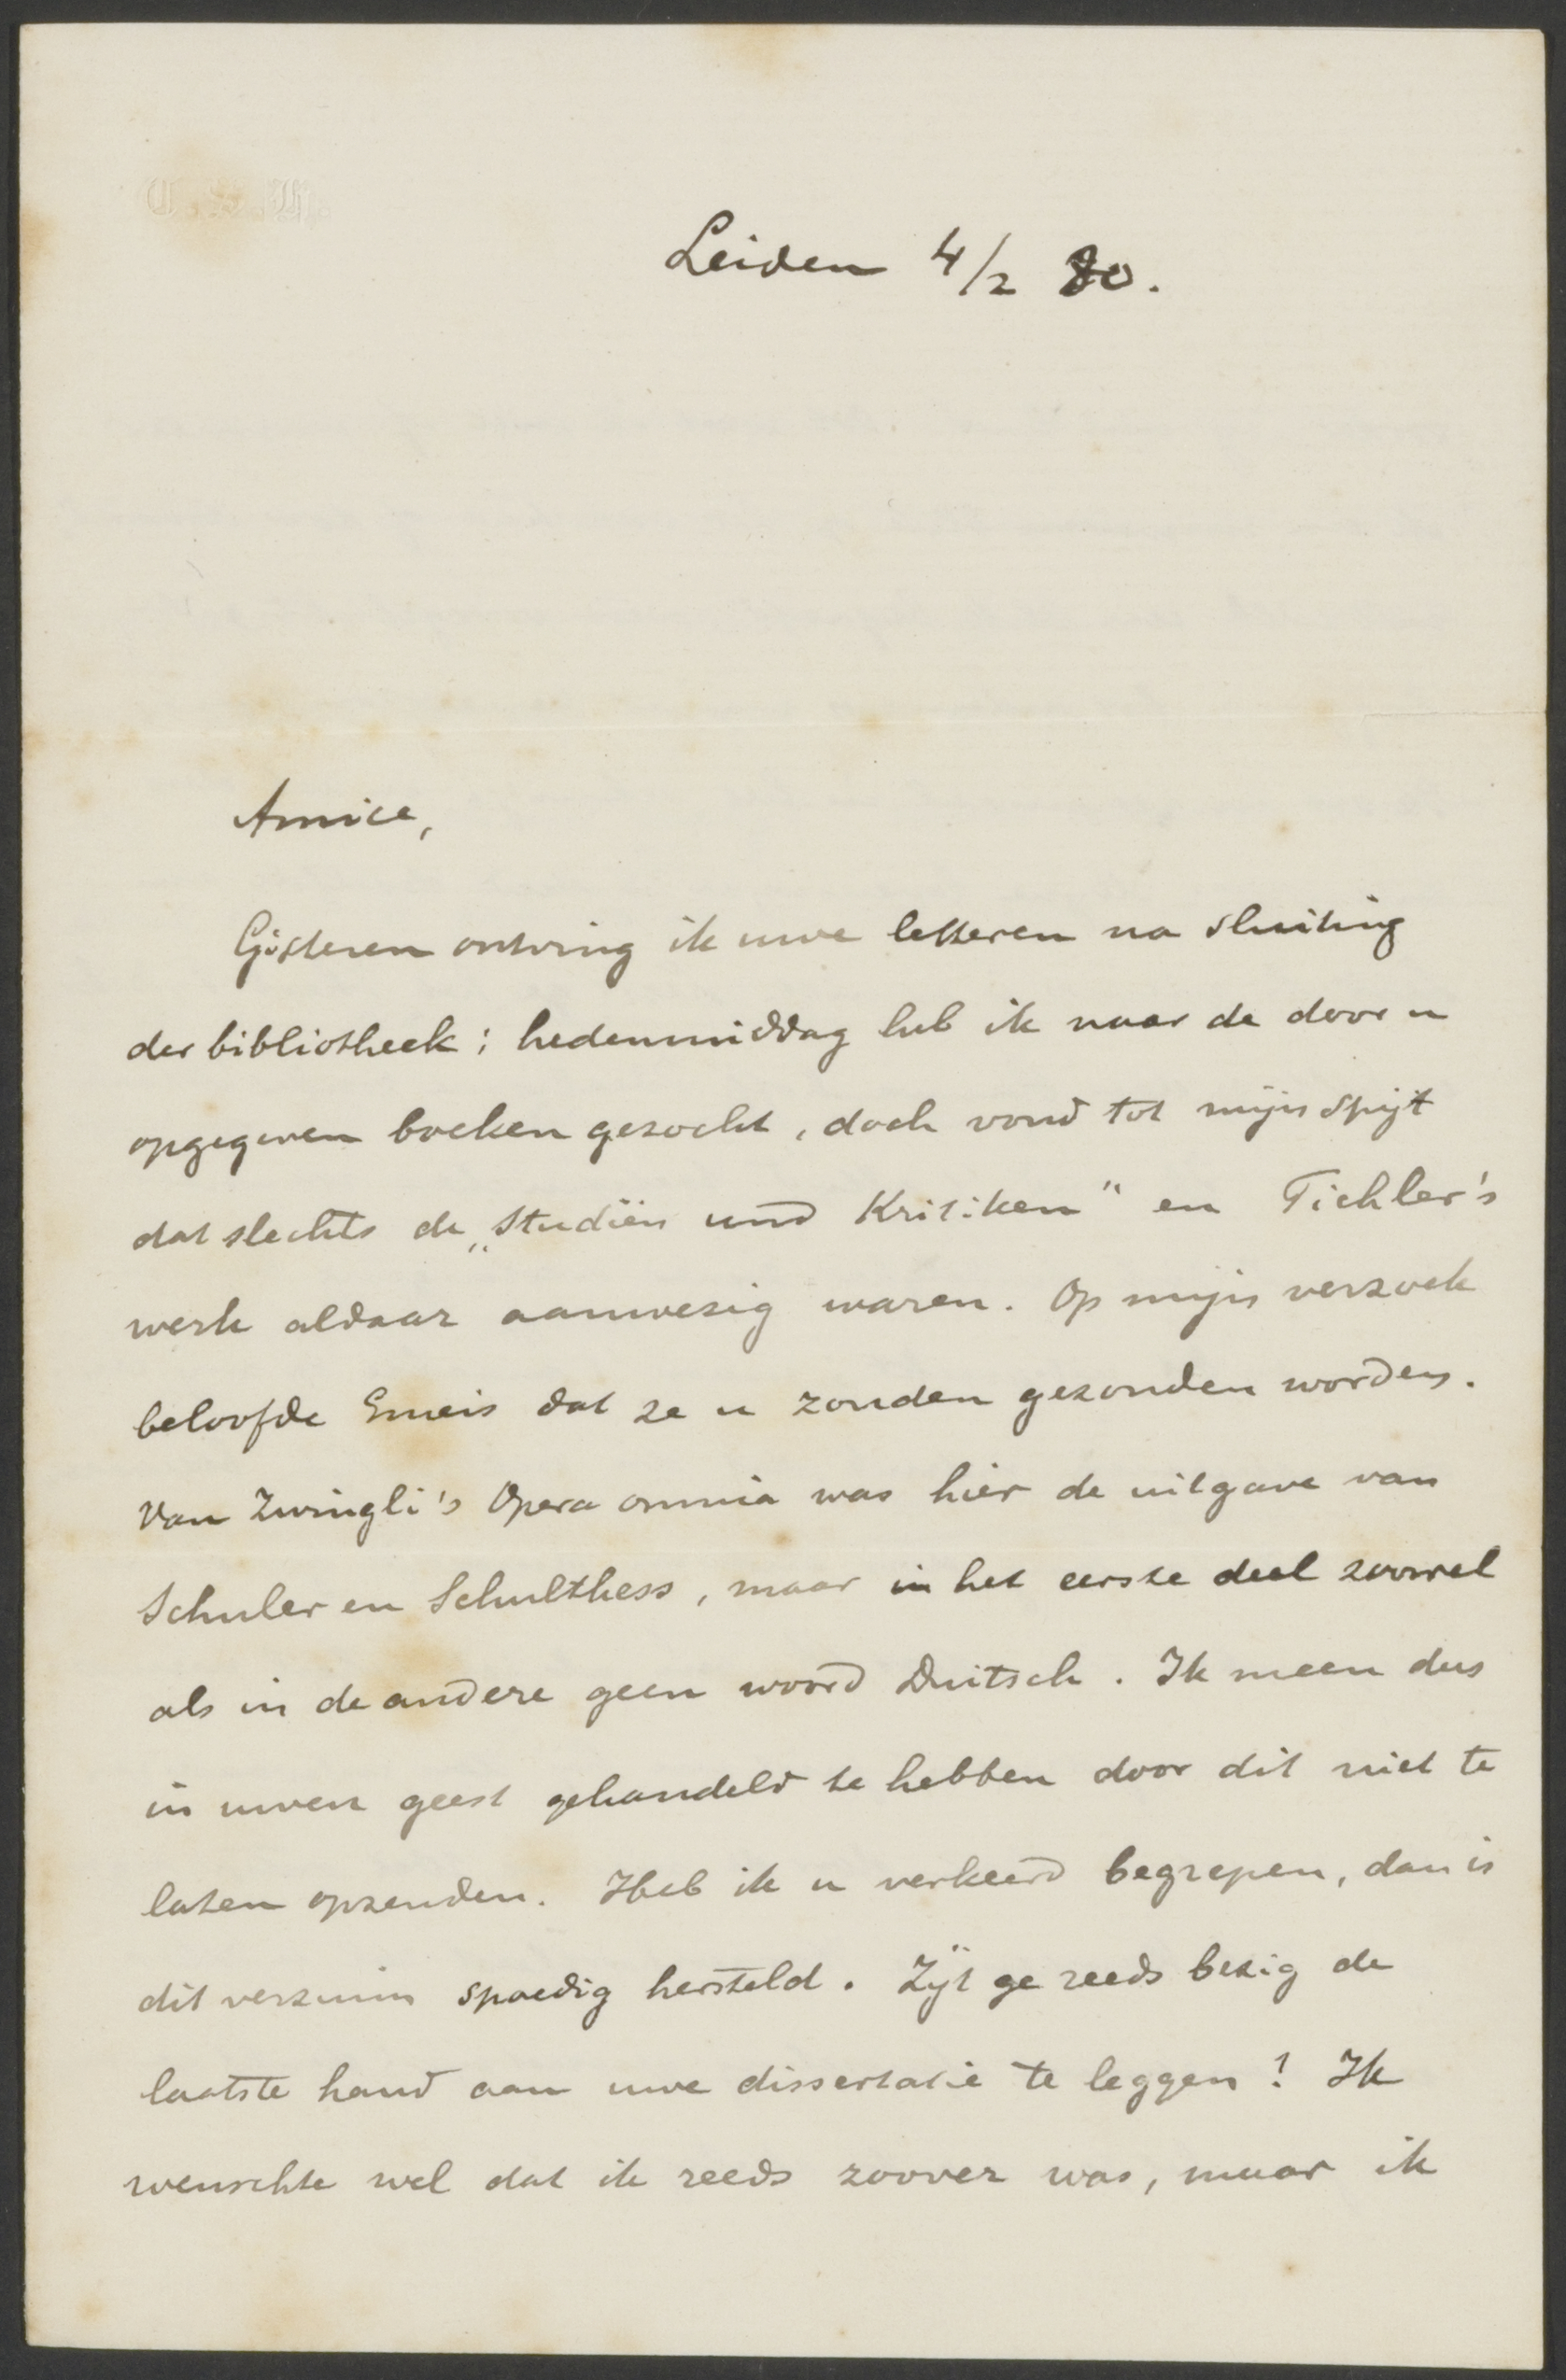 C.S.H.
Leiden 4/2 80.
Amice,
Gisteren ontving ik uwe letteren na sluiting
der bibliotheek; hedenmiddag heb ik naar de door u
opgegeven boeken gezocht, doch vond tot mijn spijt
dat slechts de „Studiën und Kritiken" en Tichler's
werk aldaar aanwezig waren. Op mijn verzoek
beloofde Emeis dat ze u zonden gezonden worden.
Van Zwingli's Opera omnia was hier de uitgave van
Schuler en Schulthess, maar in het eerste deel zoowel
als in de andere geen woord Duitsch. Ik meen dus
in uwen geest gehandeld te hebben door dit niet te
laten opzenden. Heb ik u verkeerd begrepen, dan is
dit verzuim spoedig hersteld. Zijt ge reeds bezig de
laatste hand aan uwe dissertatie te leggen? Ik
wenschte wel dat ik reeds zoover was, maar ik